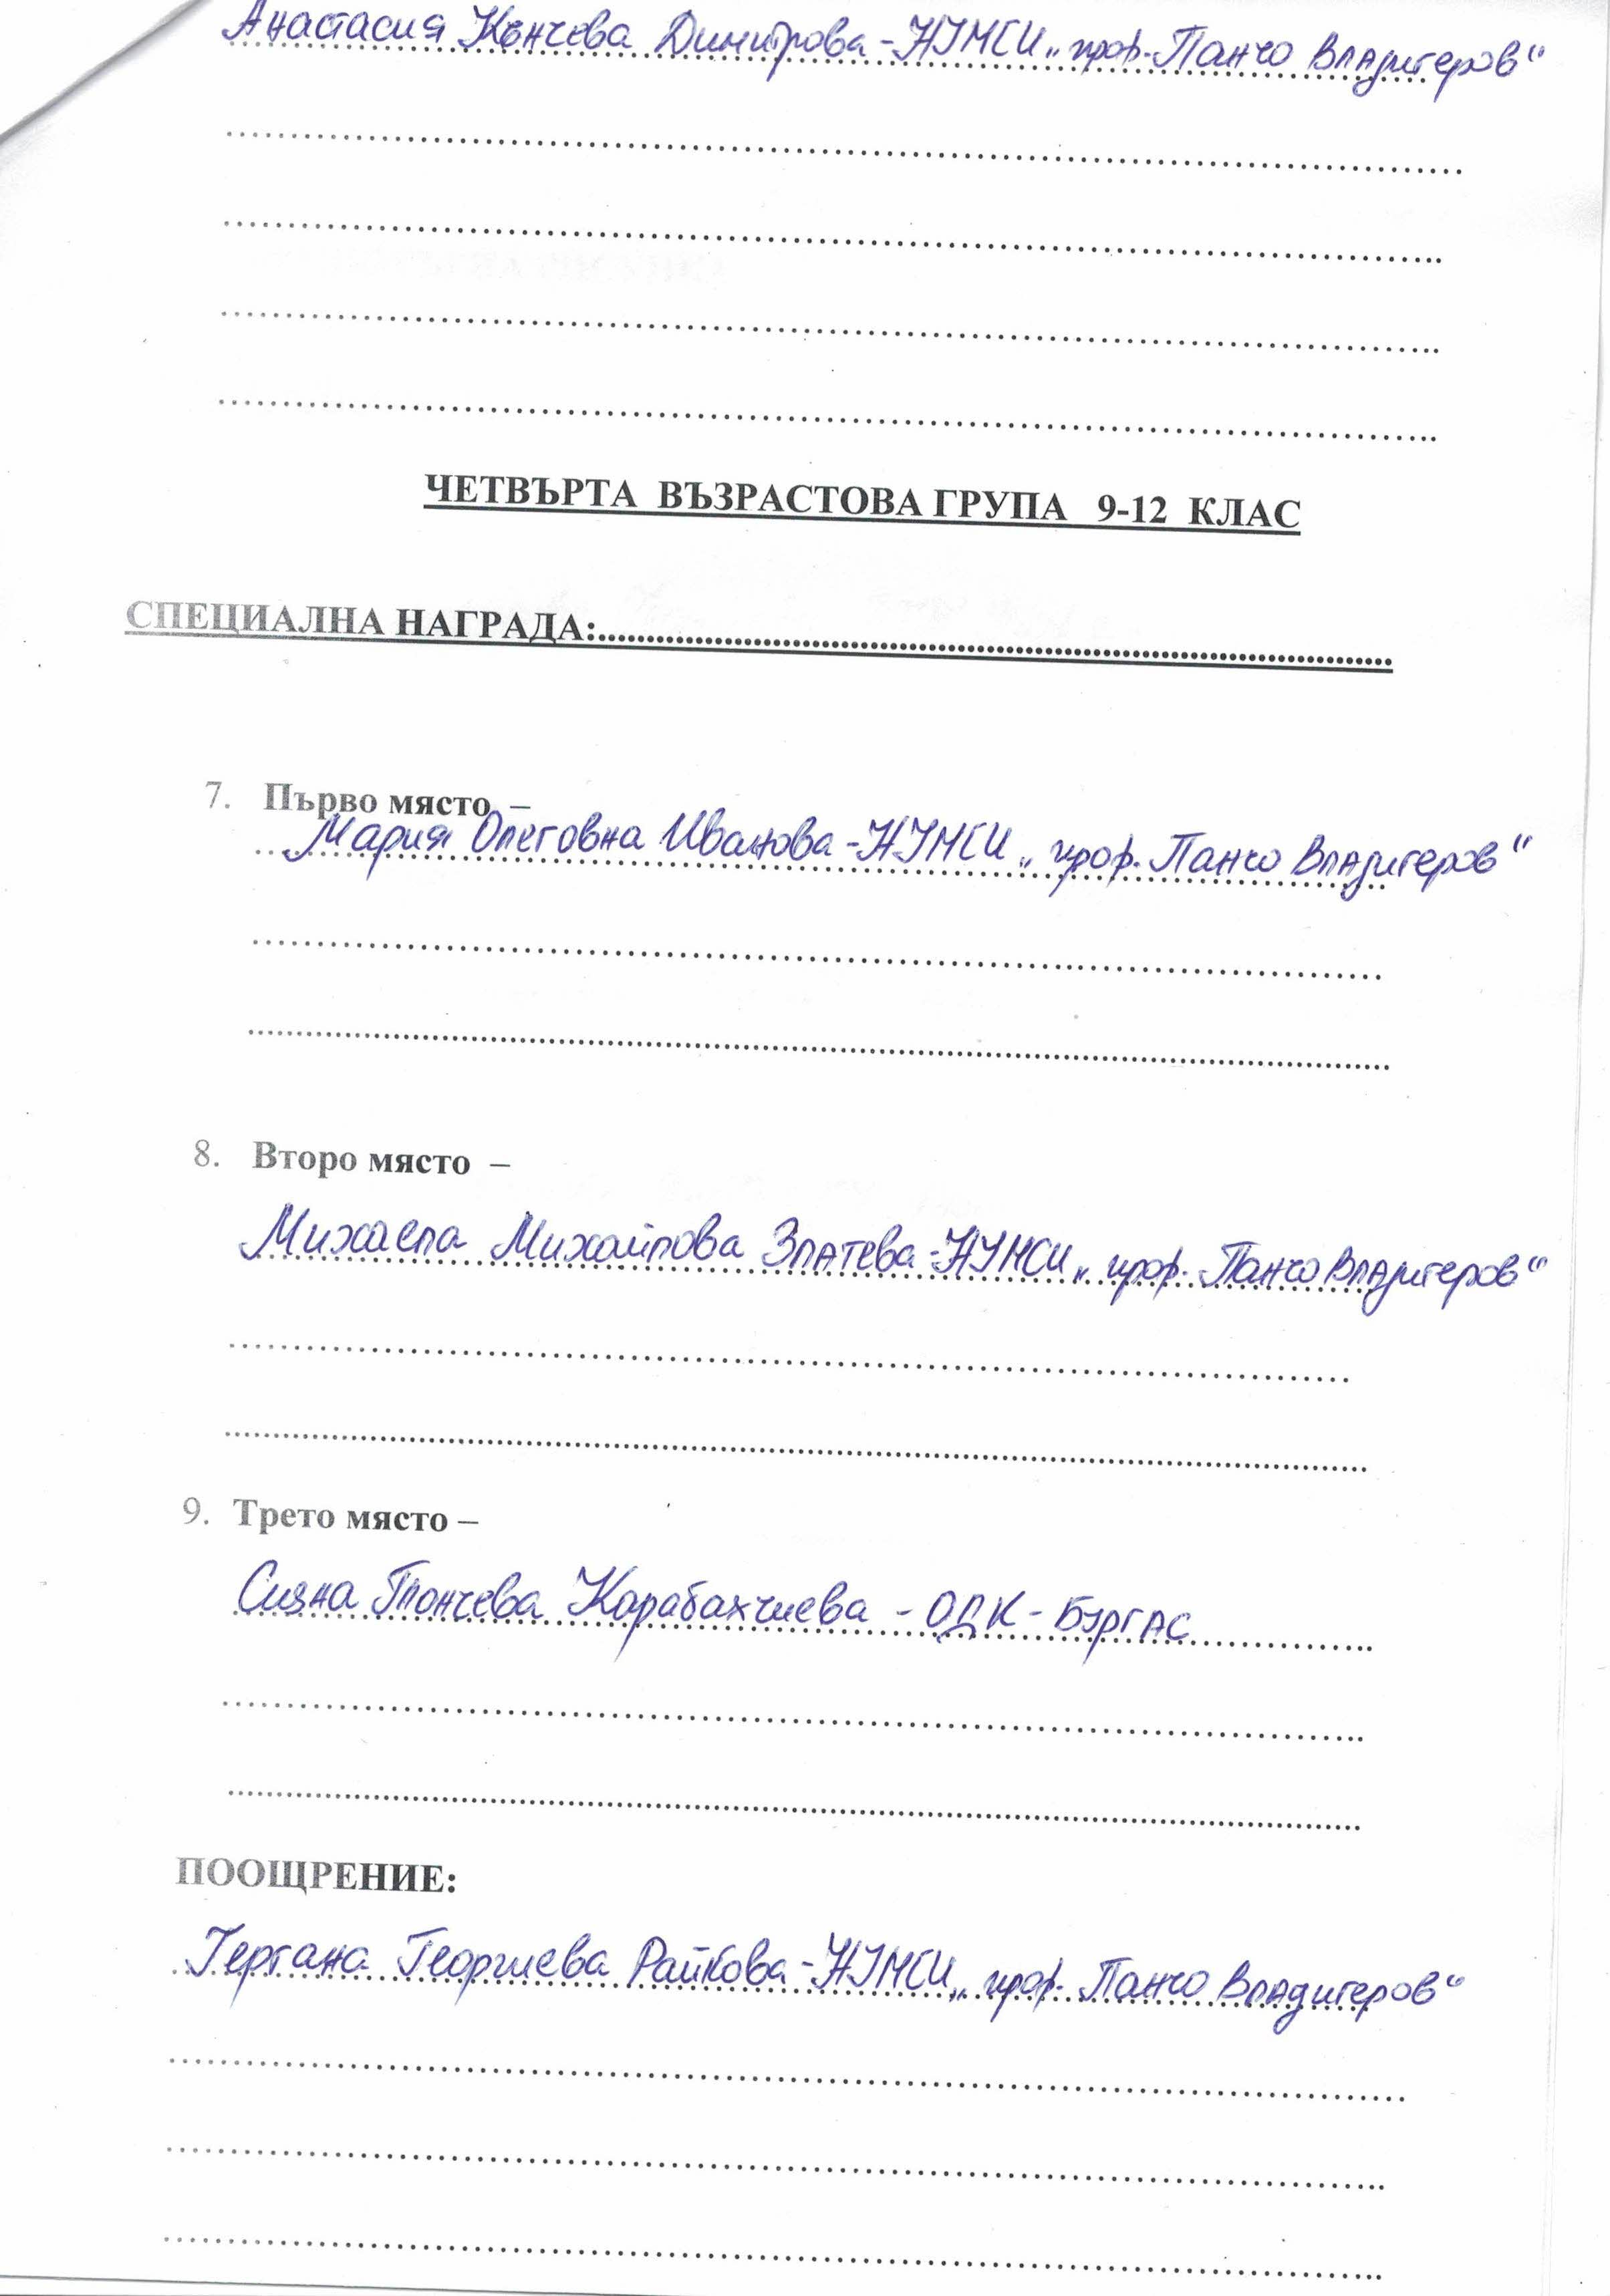 Анастасия Кънчева Димитрова - НУМСИ „проф. Панчо Владигеров“
ЧЕТВЪРТА ВЪЗРАСТОВА ГРУПА 9-12 КЛАС
СПЕЦИАЛНА НАГРАДА:
7. Първо място –
Мария Олеговна Иванова - НУМСИ „проф. Панчо Владигеров“
8. Второ място –
Михаела Михайлова Златева - НУМСИ „проф. Панчо Владигеров“
9. Трето място –
Сияна Тончева Карабахчиева - ОДК - Бургас
ПООЩРЕНИЕ:
Гергана Георгиева Райкова - НУМСИ „проф. Панчо Владигеров“